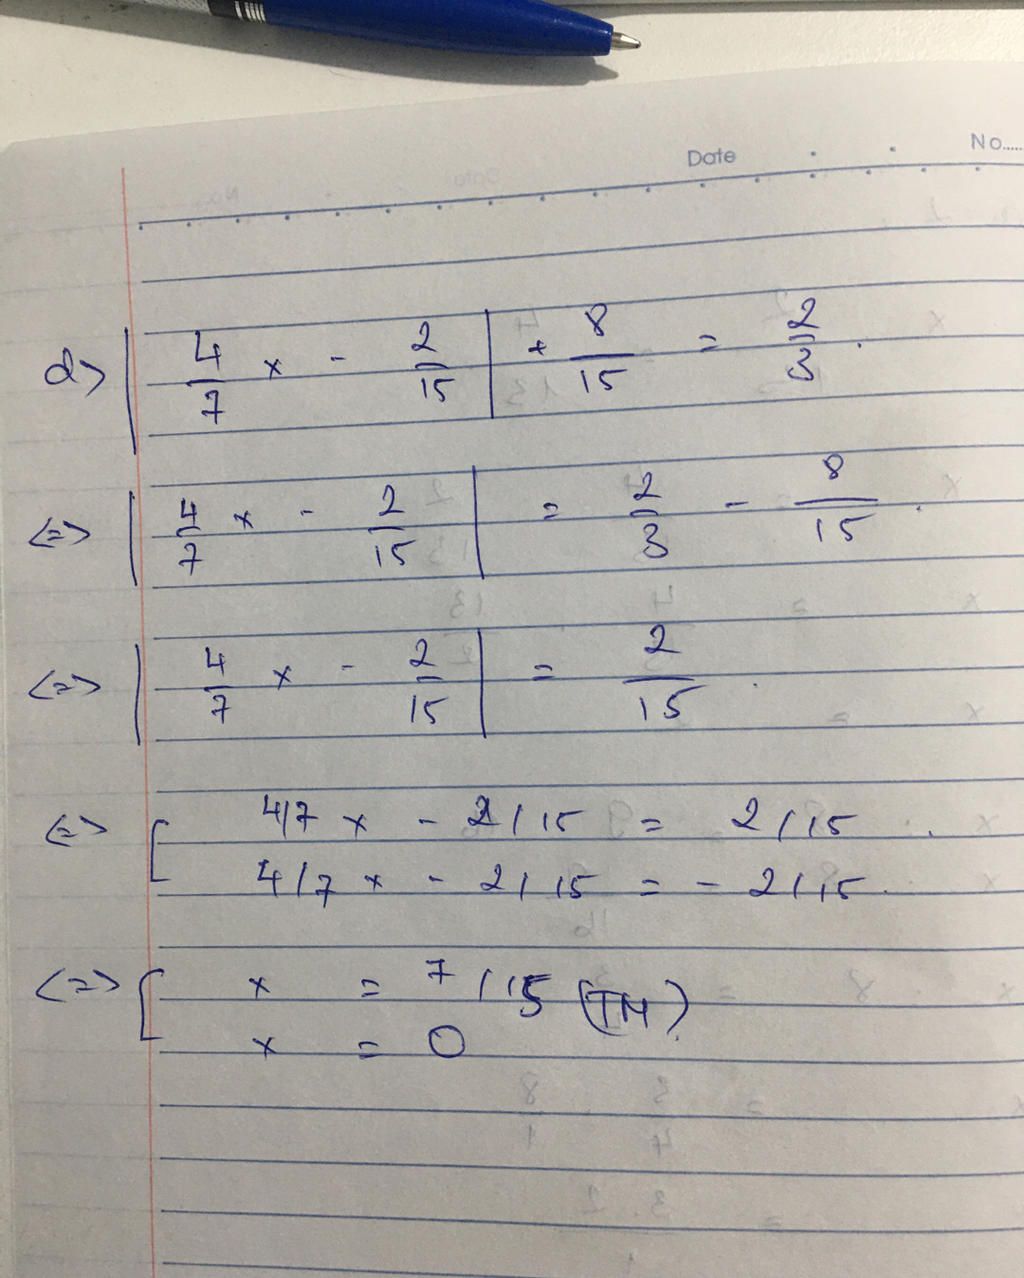 Date No.....
d> | 4/7 x - 2/15 | + 8/15 = 2/3 .
<=> | 4/7 x - 2/15 | = 2/3 - 8/15 .
<=> | 4/7 x - 2/15 | = 2/15 .
<=> [ 4/7 x - 2/15 = 2/15 .
4/7 x - 2/15 = - 2/15 .
<=> [ x = 7/15 (TM)
x = 0